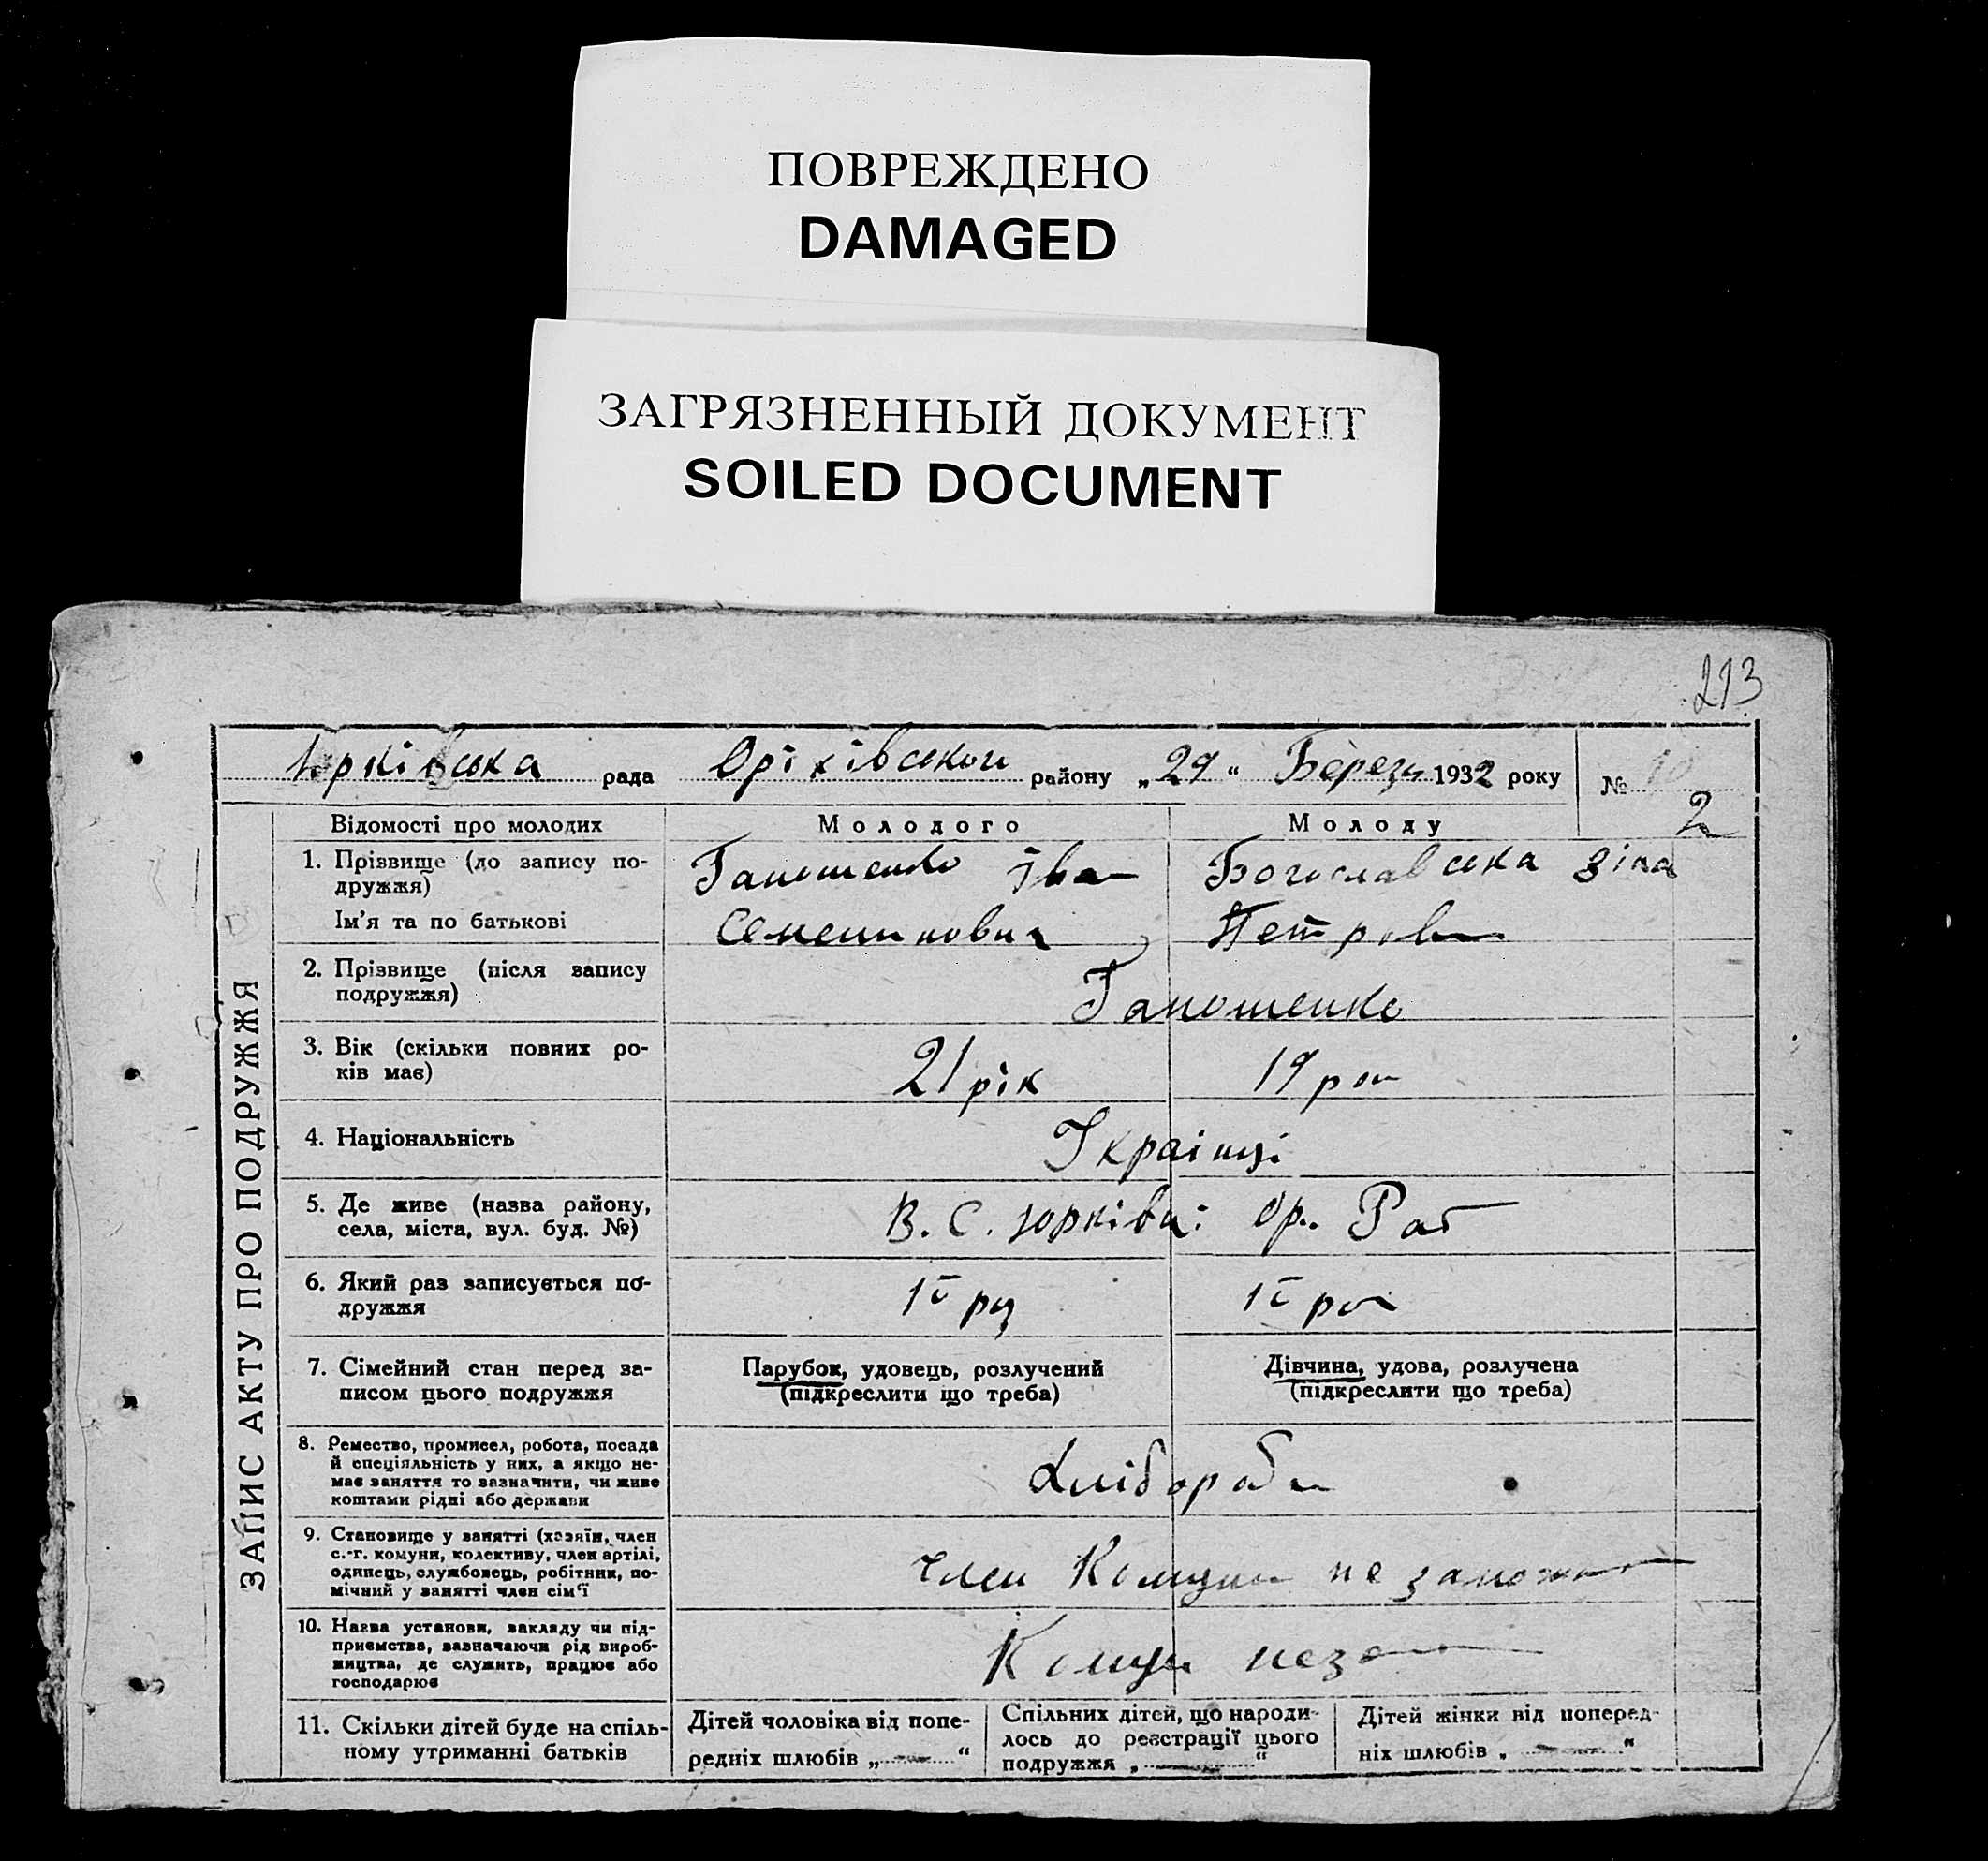 ПОВРЕЖДЕНО
DAMAGED
ЗАГРЯЗНЕННЫЙ ДОКУМЕНТ
SOILED DOCUMENT
213
Юрківська рада Оріхівського району „29“ Березня 1932 року №
2
ЗАПИС АКТУ ПРО ПОДРУЖЖЯ
Відомості про молодих Молодого Молоду
1. Прізвище (до запису по-
дружжя)
Ім'я та по батькові
Іван
Богославська Зіна
Петр
2. Прізвище (після запису
подружжя)
3. Вік (скільки повних ро-
ків має)
21 рік
19 рок
4. Національність
Українці
5. Де живе (назва району,
села, міста, вул. буд. №)
В. С. Юрківка: Ор.
6. Який раз записується по-
дружжя
7. Сімейний стан перед за-
писом цього подружжя
Парубок, удовець, розлучений
(підкреслити що треба)
Дівчина, удова, розлучена
(підкреслити що треба)
8. Ремество, промисел, робота, посада
й спеціяльність у них, а якщо не-
має заняття то зазначити, чи живе
коштами рідні або держави
Хлібороби
9. Становище у занятті (хазяїн, член
с.-г. комуни, колективу, член артілі,
одинець, службовець, робітник, по-
мічний у занятті член сім'ї
член Комуни незаможн
10. Назва установи, закладу чи під-
приємства, зазначаючи рід вироб-
ництва, де служить, працює або
господарює
11. Скільки дітей буде на спіль-
ному утриманні батьків
Дітей чоловіка від попе-
редніх шлюбів „ “
Спільних дітей, що народи-
лось до реєстрації цього
подружжя „ “
Дітей жінки від поперед-
ніх шлюбів „ “